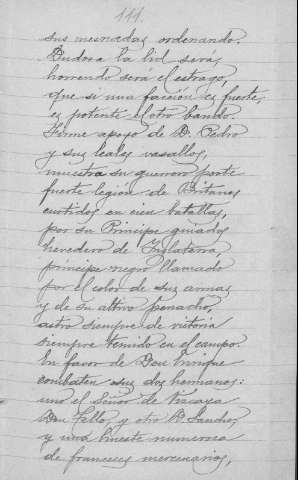 111.
sus mesnadas ordenando.
Dudosa la lid será,
horrendo será el estrago,
que si una facción es fuerte,
es potente el otro bando.
Firme apoyo de D. Pedro
y sus leales vasallos,
muestra su guerrero porte
fuerte legión de Britanos
curtidos en cien batallas,
por su Príncipe guiados
heredero de Inglaterra,
príncipe negro llamado
por el color de sus armas
y de su altivo penacho,
astro siempre de victoria
siempre temido en el campo.
En favor de Don Enrique
combaten sus dos hermanos:
uno el Señor de Vizcaya
Don Tello, y otro D. Sancho,
y una hueste numerosa
de franceses mercenarios,